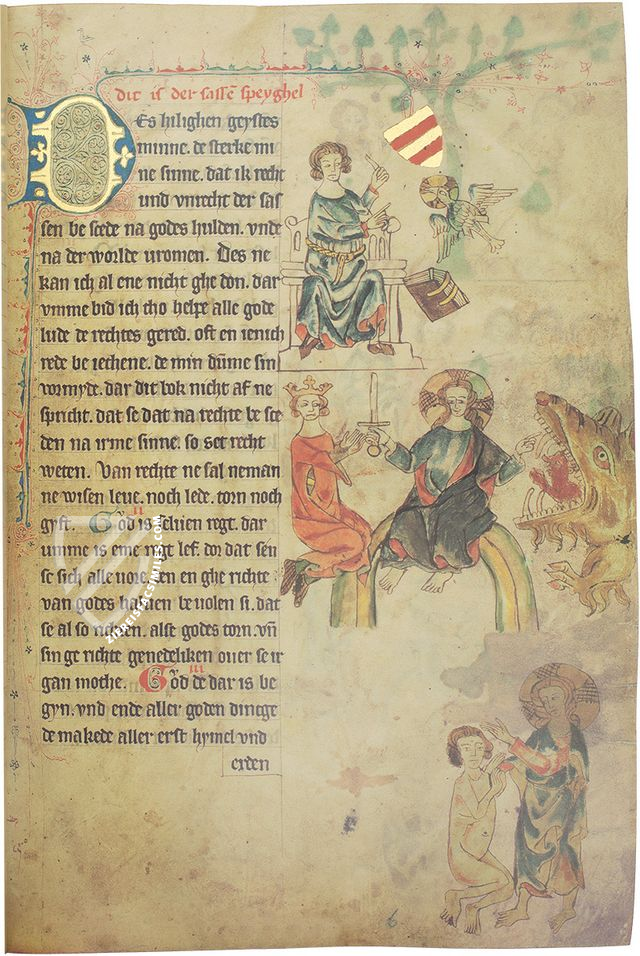 dit is der sassē speyghel
Des hilighen geystes
minne. de sterke mi
ne sinne. dat ik recht
und vnrecht der sas
sen be scede na godes hulden. vnde
na der worlde uromen. Des ne
kan ich al ene nicht ghe don. dar
vmme bid ich tho helpe alle gode
lude de rechtes gered. oft en ienich
rede be ieghene. de min dūme sin
vormyde. dar dit bok nicht af ne
spricht. dat se dat na rechte be sce
den na irme sinne. so set recht
weten. Van rechte ne sal neman
ne wisen leue. noch lede. torn noch
gyft. God is seluen regt. dar
umme is eme regt lef. dor dat sen
se sich alle uore den en ghe richte
van godes haluen be uolen si. dat
se al so richten. alse godes torn. vn̄
sin ge richte genedeliken ouer se ir
gan moghe. God de dar is be
gyn. vnd ende aller goden dincge
de makede aller erst hymel vnd
erden
6